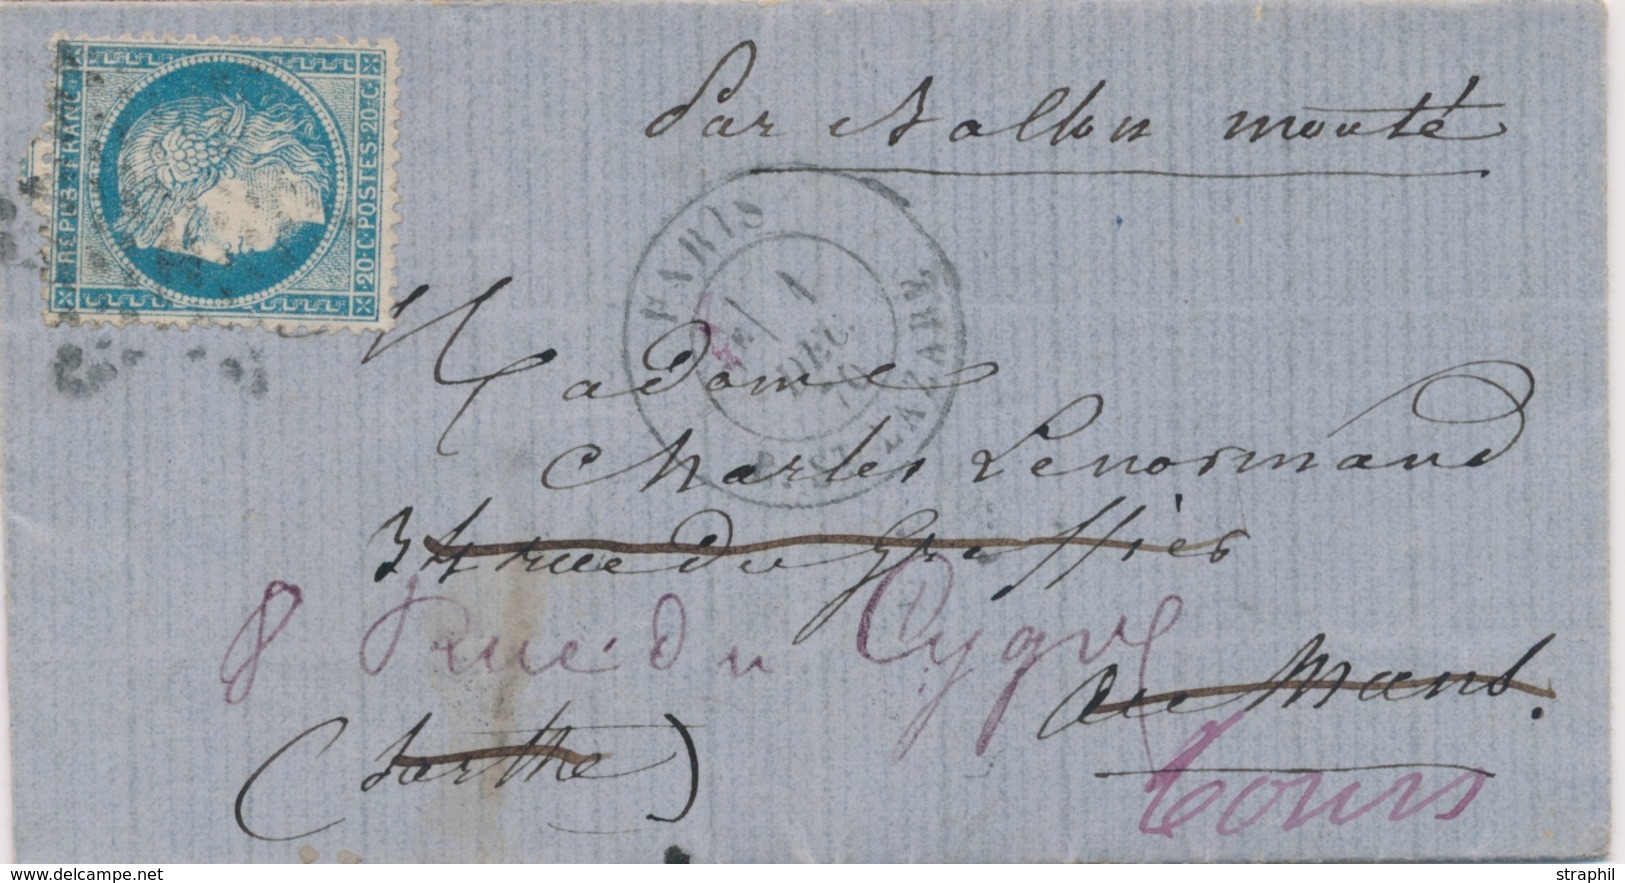 Par Ballon monté
REPUB · FRANC ·
20 · C · POSTES · 20 · C
PARIS
1
DEC.
70
R. ST LAZARE
Madame
Charles Lenormand
34 rue du Greffier
8 Rue du Cygne
au Mans.
(Sarthe)
Tours
delcampe.net
straphil